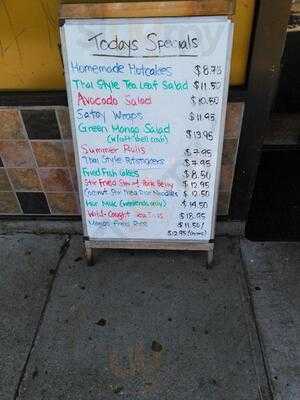 Todays Specials
Homemade Hotcakes $8.75
Thai Style Tea Leaf Salad $11.50
Avocado Salad $10.50
Satay Wraps $11.95
Green Mango Salad
$13.95
Summer Rolls $7.95
Thai Style Potstickers $7.95
Fried Fish Cakes $8.50
Stir Fried Pork Belly $12.95
Coconut Rice Noodles $10.50
(weekends only) $14.50
Wild-Caught $18.95
Fried Rice $11.50/
$12.95